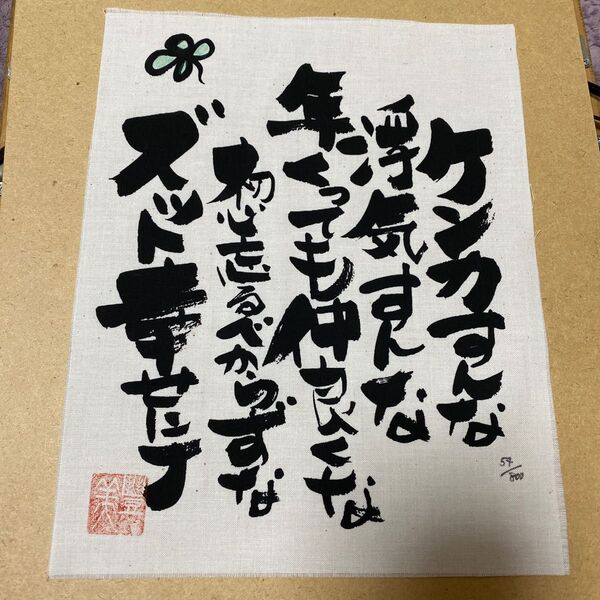 ケンカすんな
浮気すんな
年くっても仲良くな
初心忘るべからずな
ズット幸せにナ
54/800